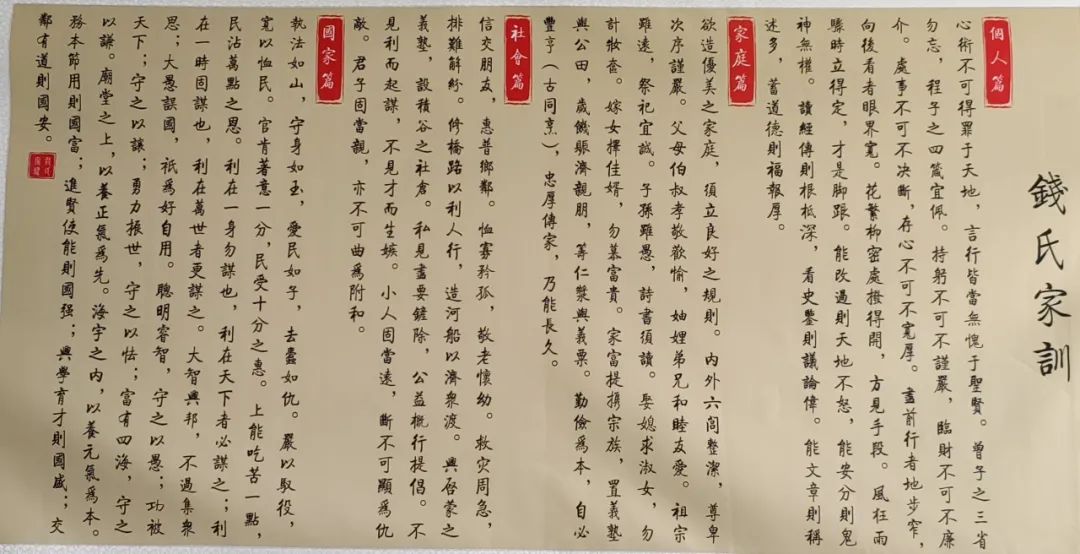 錢氏家訓
個人篇
心術不可得罪于天地，言行皆當無愧于聖賢。曾子之三省
勿忘，程子之四箴宜佩。持躬不可不謹嚴，臨財不可不廉
介。處事不可不决斷，存心不可不寬厚。盡前行者地步窄，
向後看者眼界寬。花繁柳密處撥得開，方見手段。風狂雨
驟時立得定，才是脚跟。能改過則天地不怒，能安分則鬼
神無權。讀經傳則根柢深，看史鑒則議論偉。能文章則稱
述多，蓄道德則福報厚。
家庭篇
欲造優美之家庭，須立良好之規則。內外六閭整潔，尊卑
次序謹嚴。父母伯叔孝敬歡愉，妯娌弟兄和睦友愛。祖宗
雖遠，祭祀宜誠。子孫雖愚，詩書須讀。娶媳求淑女，勿
計妝奩。嫁女擇佳婿，勿慕富貴。家富提攜宗族，置義塾
與公田，歲饑賑濟親朋，籌仁漿與義粟。勤儉爲本，自必
豐亨（古同烹），忠厚傳家，乃能長久。
社會篇
信交朋友，惠普鄉鄰。恤寡矜孤，敬老懷幼。救灾周急，
排難解紛。修橋路以利人行，造河船以濟衆渡。興啓蒙之
義塾，設積谷之社倉。私見盡要鏟除，公益概行提倡。不
見利而起謀，不見才而生嫉。小人固當遠，斷不可顯爲仇
敵。君子固當親，亦不可曲爲附和。
國家篇
執法如山，守身如玉，愛民如子，去蠹如仇。嚴以馭役，
寬以恤民。官肯著意一分，民受十分之惠。上能吃苦一點，
民沾萬點之恩。利在一身勿謀也，利在天下者必謀之；利
在一時固謀也，利在萬世者更謀之。大智興邦，不過集衆
思；大愚誤國，祇爲好自用。聰明睿智，守之以愚；功被
天下；守之以讓；勇力振世，守之以怯；富有四海，守之
以謙。廟堂之上，以養正氣爲先。海宇之内，以養元氣爲本。
務本節用則國富；進賢使能則國强；興學育才則國盛；交
鄰有道則國安。